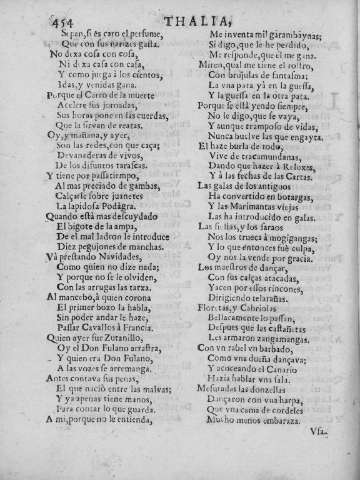 454 THALIA,
Si pan, si es caro el perfume,
Que con sus narizes gasta.
No dexa cosa con cosa,
Ni dexa casa con casa,
Y como juega à los cientos,
Idas, y venidas gana.
Porque el Carro de la muerte
Acelere sus jornadas,
Sus horas pone en sus cuerdas,
Que la sirvan de reatas.
Oy, y mañana, y ayer,
Son las redes, con que caça;
Devanaderas de vivos,
De los difuntos tarascas.
Y tiene por passatiempo,
Al mas preciado de gambas,
Calçarle sobre juanetes
La lapidosa Podagra.
Quando està mas descuydado
El bigote de la ampa,
De el mal ladron le introduce
Diez pegujones de manchas.
Và prestando Navidades,
Como quien no dize nada;
Y porque no se le olviden,
Con las arrugas las tarxa.
Al mancebo, à quien corona
El primer bozo la habla,
Sin poder andar le haze,
Passar Cavallos à Francia.
Quien ayer fue Zutanillo,
Oy el Don Fulano arrastra,
Y quien era Don Fulano,
A las vozes se arremanga.
Antes contava sus penas,
El que naciò entre las malvas;
Y ya apenas tiene manos,
Para contar lo que guarda.
A mi, porque no le entienda,
Me inventa mil garambaynas;
Si digo, que le he perdido,
Me responde, que él me gana.
Miren, qual me tiene el rostro,
Con brujulas de fantasma;
La vna pata yà en la guessa,
Y la guessa en la otra pata.
Porque se està yendo siempre,
No le digo, que se vaya,
Y aunque tramposo de vidas,
Nunca buelve las que engayta.
El haze burla de todo,
Vive de tracamundanas,
Dando que hazer à Reloxes,
Y à las fechas de las Cartas.
Las galas de los antiguos
Ha convertido en botargas,
Y las Marimantas viejas
Las ha introducido en galas.
Las fiestas, y los saraos
Nos los trueca à mogigangas;
Y lo que entonces fuè culpa,
Oy nos la vende por gracia.
Los maestros de dançar,
Con sus calças atacadas,
Yacen por essos rincones,
Dirigiendo telarañas.
Floretas, y Cabriolas
Bellacamente lo passan,
Despues que las castañetas
Les armaron zangamangas.
Con vn rabel vn barbado,
Como vna dueña dançava;
Y acoceando el Canario
Hazia hablar vna sala.
Mesuradas las donzellas
Dançaron con vna harpa,
Que vna cama de cordeles
Mucho menos embaraza.
Vsa-